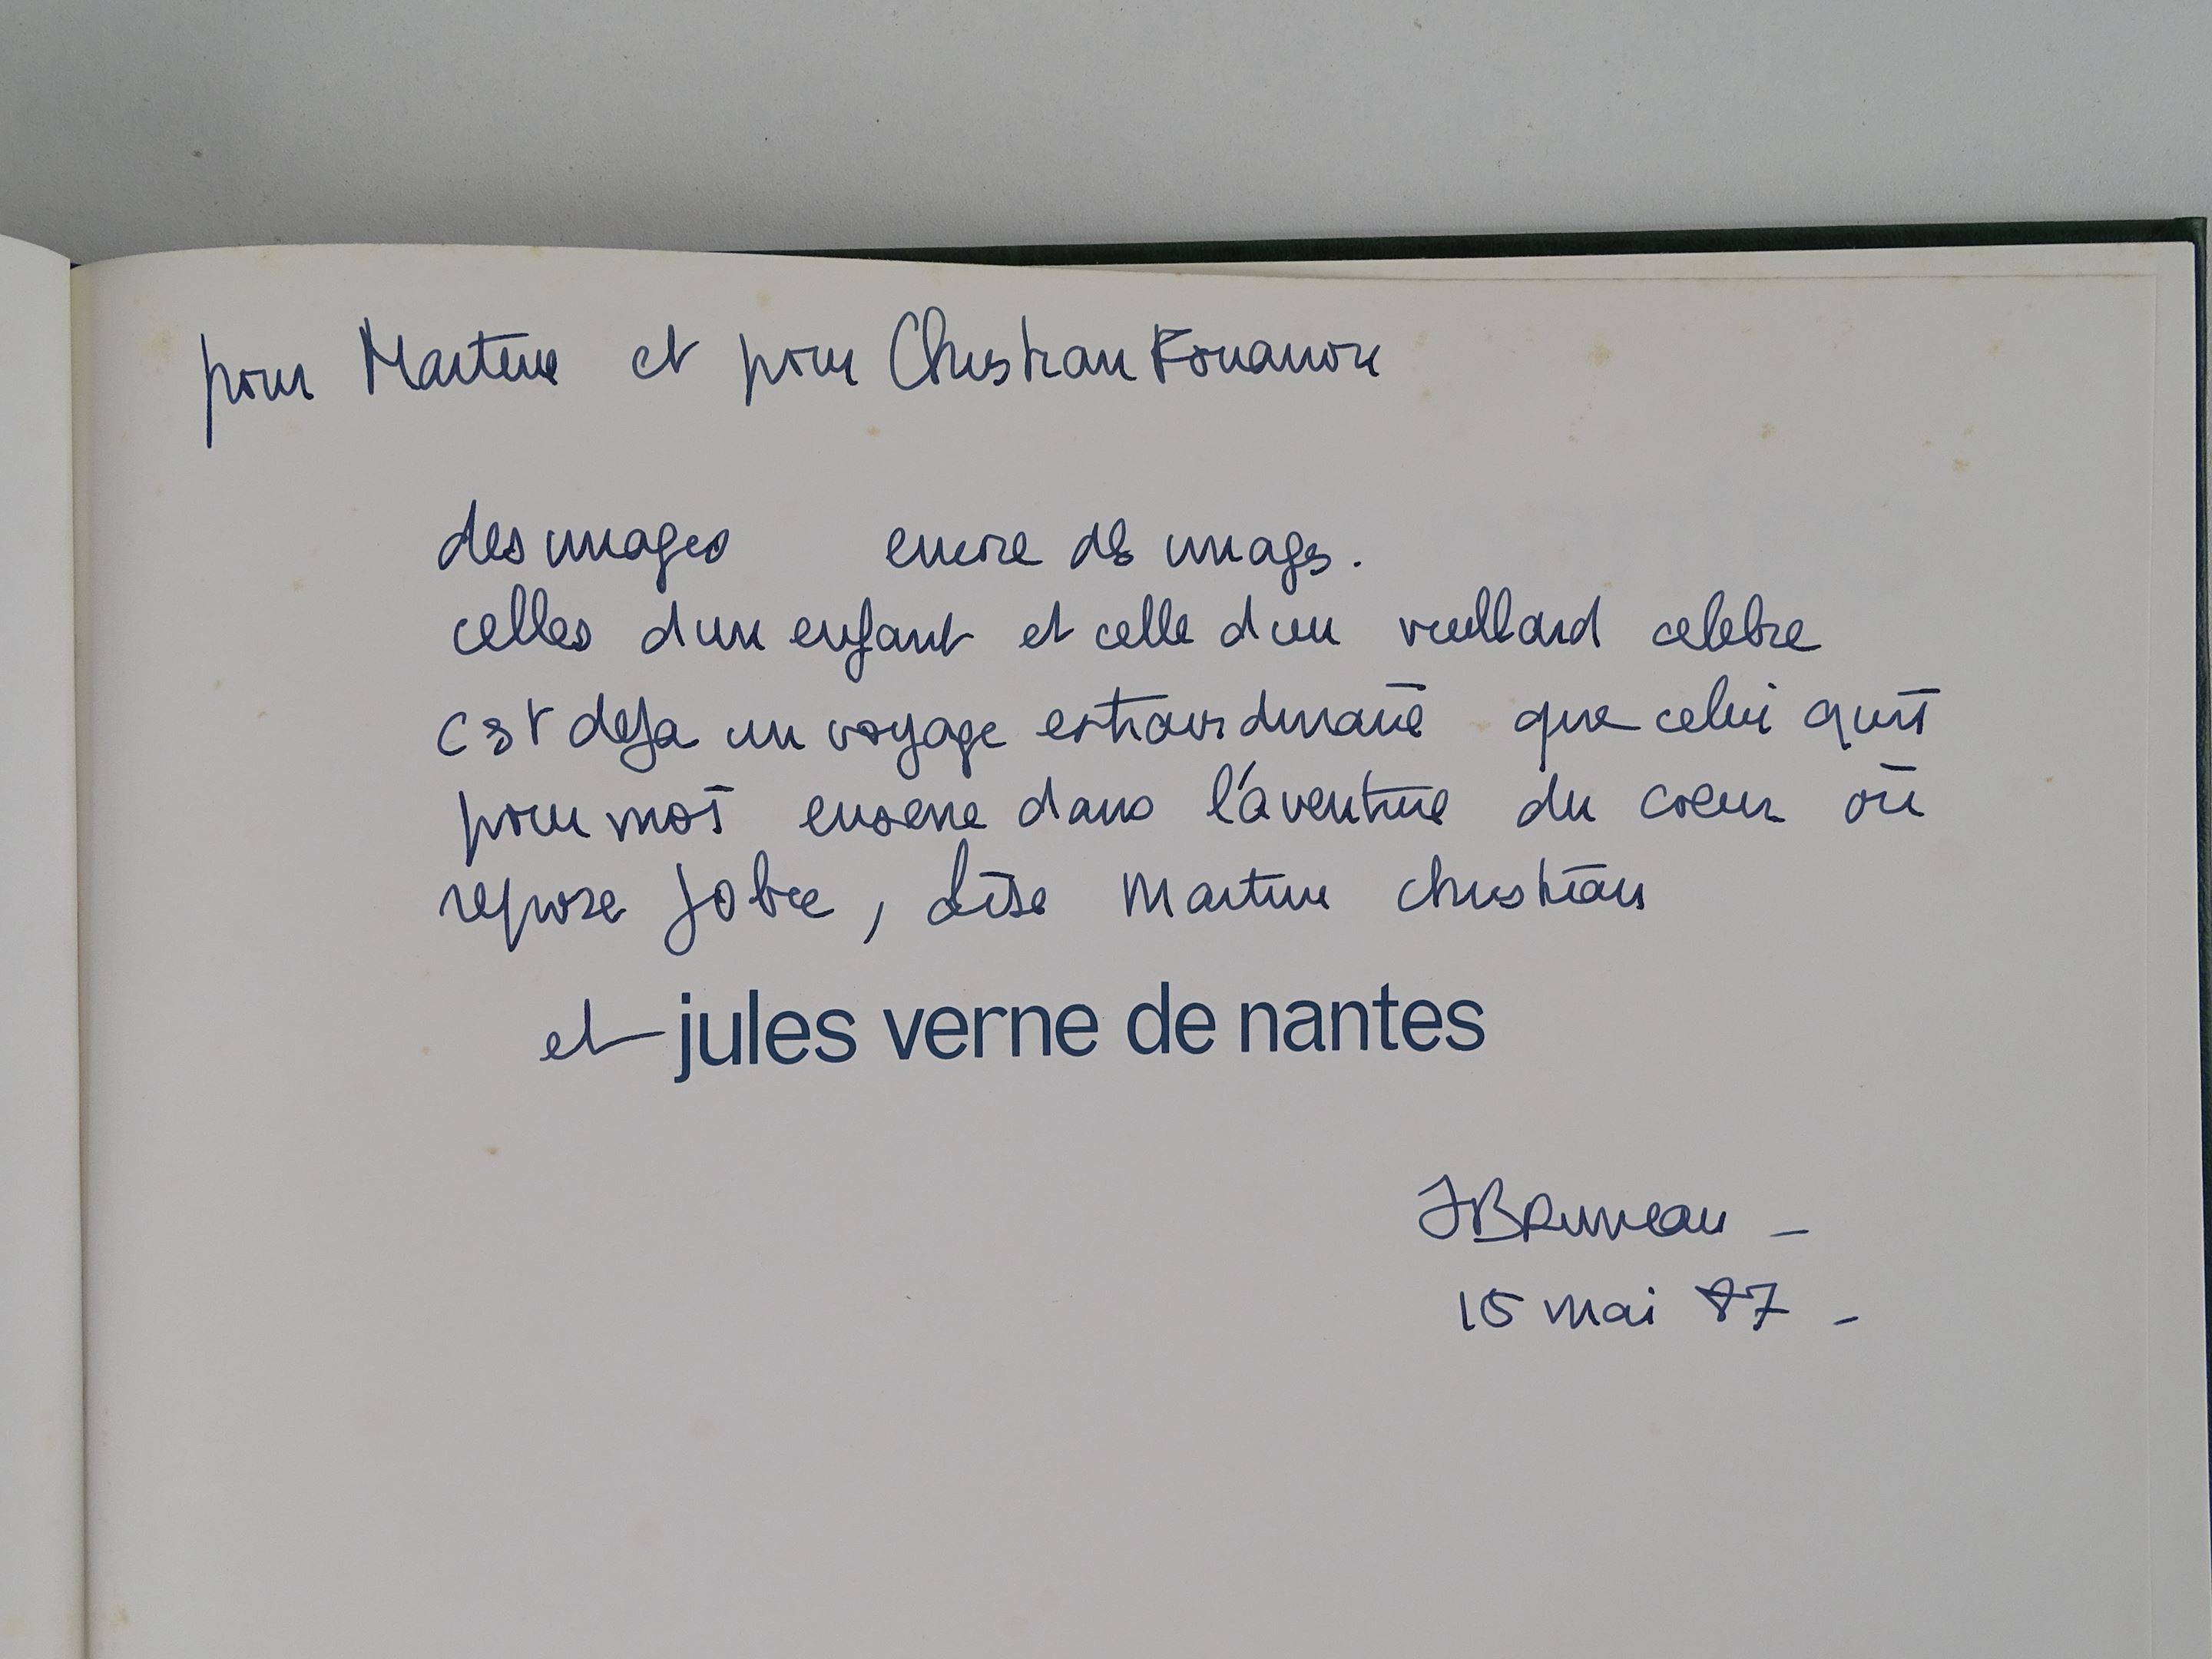 pour Martine et pour Christian
des images encore des images.
celles d'un enfant et celle d'un vieillard celebre
c'est deja un voyage extraordinaire que celui qui
pour moi enserre dans l'aventure du coeur où
repose Jobre, Lise Martine Christian
et jules verne de nantes
JBruneau -
15 mai 87 -